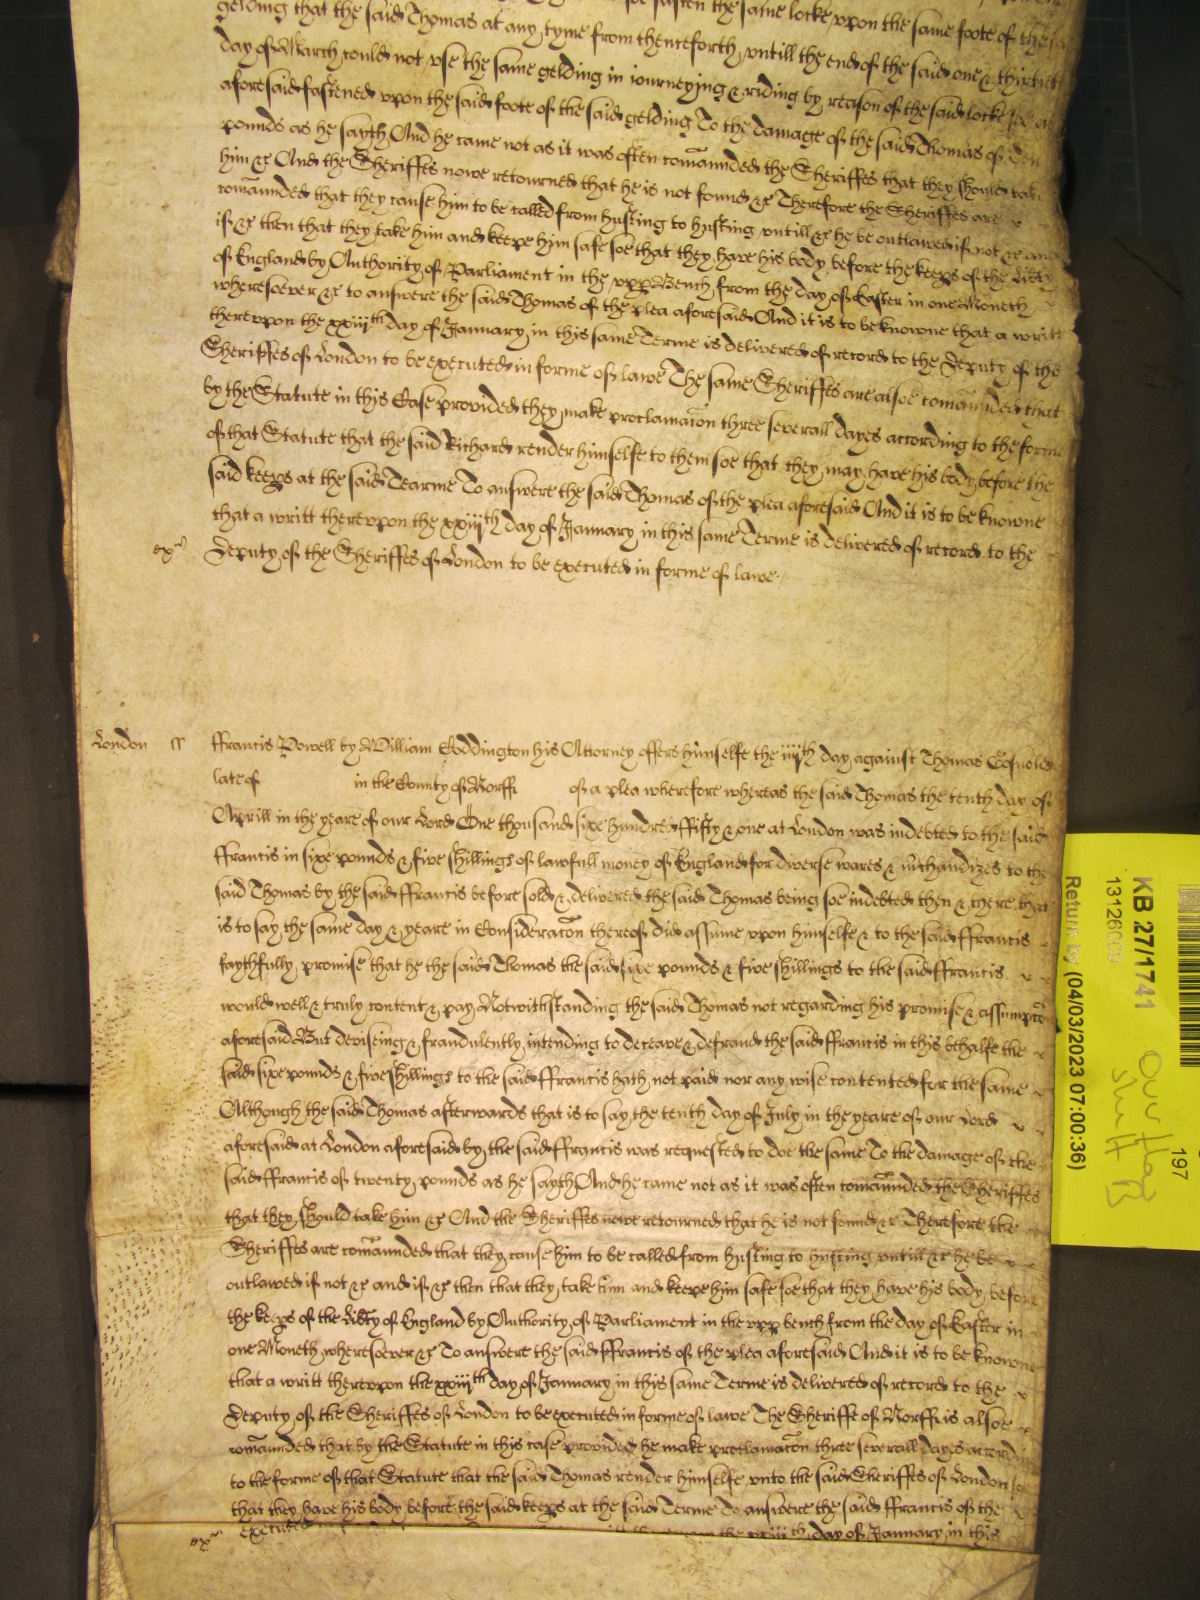 gelding that the said Thomas at any tyme from thenceforth untill the end of the said one & thirtith
day of March could not use the same gelding in iourneying & riding by reason of the said locke
aforesaid fastened upon the said foote of the said gelding To the damage of the said Thomas of
pounds as he sayth And he came not as it was often comaunded the Sheriffes that they should take
him &c And the Sheriffes nowe retourned that he is not found &c Therefore the Sheriffes are
comaunded that they cause him to be called from husting to husting untill &c he be outlawed if not &c and
if &c then that they take him and keepe him safe soe that they have his body before the keeps of the Libty
of England by Authority of Parliament in the upp Bench from the day of Easter in one Moneth
wheresoever &c to answere the said Thomas of the plea aforesaid And it is to be knowne that a writt
thereupon the xxiiith day of January in this same Terme is delivered of record to the Deputy of the
Sheriffes of London to be executed in forme of lawe The same Sheriffes are alsoe comaunded that
by the Statute in this Case provided they make proclamacon three severall dayes according to the forme
of that Statute that the said Richard render himselfe to them soe that they may have his body before the
said keeps at the said Tearme To answere the said Thomas of the plea aforesaid And it is to be knowne
that a writt thereupon the xxiiith day of January in this same Terme is delivered of record to the
exr Deputy of the Sheriffes of London to be executed in forme of lawe
London ss ffrancis Powell by William Coddington his Attorney offers himselfe the iiiith day against Thomas
late of in the County of Norff of a plea wherefore whereas the said Thomas the tenth day of
Aprill in the yeare of our Lord One thousand sixe hundred ffifty & one at London was indebted to the said
ffrancis in sixe pounds & five shillings of lawfull money of England for diverse wares & mchandizes to the
said Thomas by the said ffrancis before sold & delivered the said Thomas being soe indebted then & there that
is to say the same day & yeare in Consideracon thereof did assume upon himselfe & to the said ffrancis
faythfully promise that he the said Thomas the said sixe pounds & five shillings to the said ffrancis
would well & truly content & pay Notwithstanding the said Thomas not regarding his promise & assumpcon
aforesaid But deviseing & fraudulently intending to deceave & defraud the said ffrancis in this behalfe the
said sixe pounds & five shillings to the said ffrancis hath not paid nor any wise contented for the same
Although the said Thomas afterwards that is to say the tenth day of July in the yeare of our Lord
aforesaid at London aforesaid by the said ffrancis was requested to doe the same To the damage of the
said ffrancis of twenty pounds as he sayth And he came not as it was often comaunded the Sheriffes
that they should take him &c And the Sheriffes nowe retourned that he is not found &c Therefore the
Sheriffes are comaunded that they cause him to be called from husting to husting untill &c he be
outlawed if not &c and if &c then that they take him and keepe him safe soe that they have his body before
the keeps of the Libty of England by Authority of Parliament in the upp bench from the day of Easter in
one Moneth wheresoever &c To answere the said ffrancis of the plea aforesaid And it is to be knowne
that a writt thereupon the xxiiith day of January in this same Terme is delivered of record to the
Deputy of the Sheriffes of London to be executed in forme of lawe The Sheriffe of Norff is alsoe
comaunded that by the Statute in this case provided he make proclamacon three severall dayes accordin
to the forme of that Statute that the said Thomas render himselfe unto the said Sheriffes of London
that they have his body before the said keeps at the said Terme To answere the said ffrancis of the
exr the xxiiith day of January in this
KB 27/1741
13126009
Return by (04/03/2023 07:00:36)
197